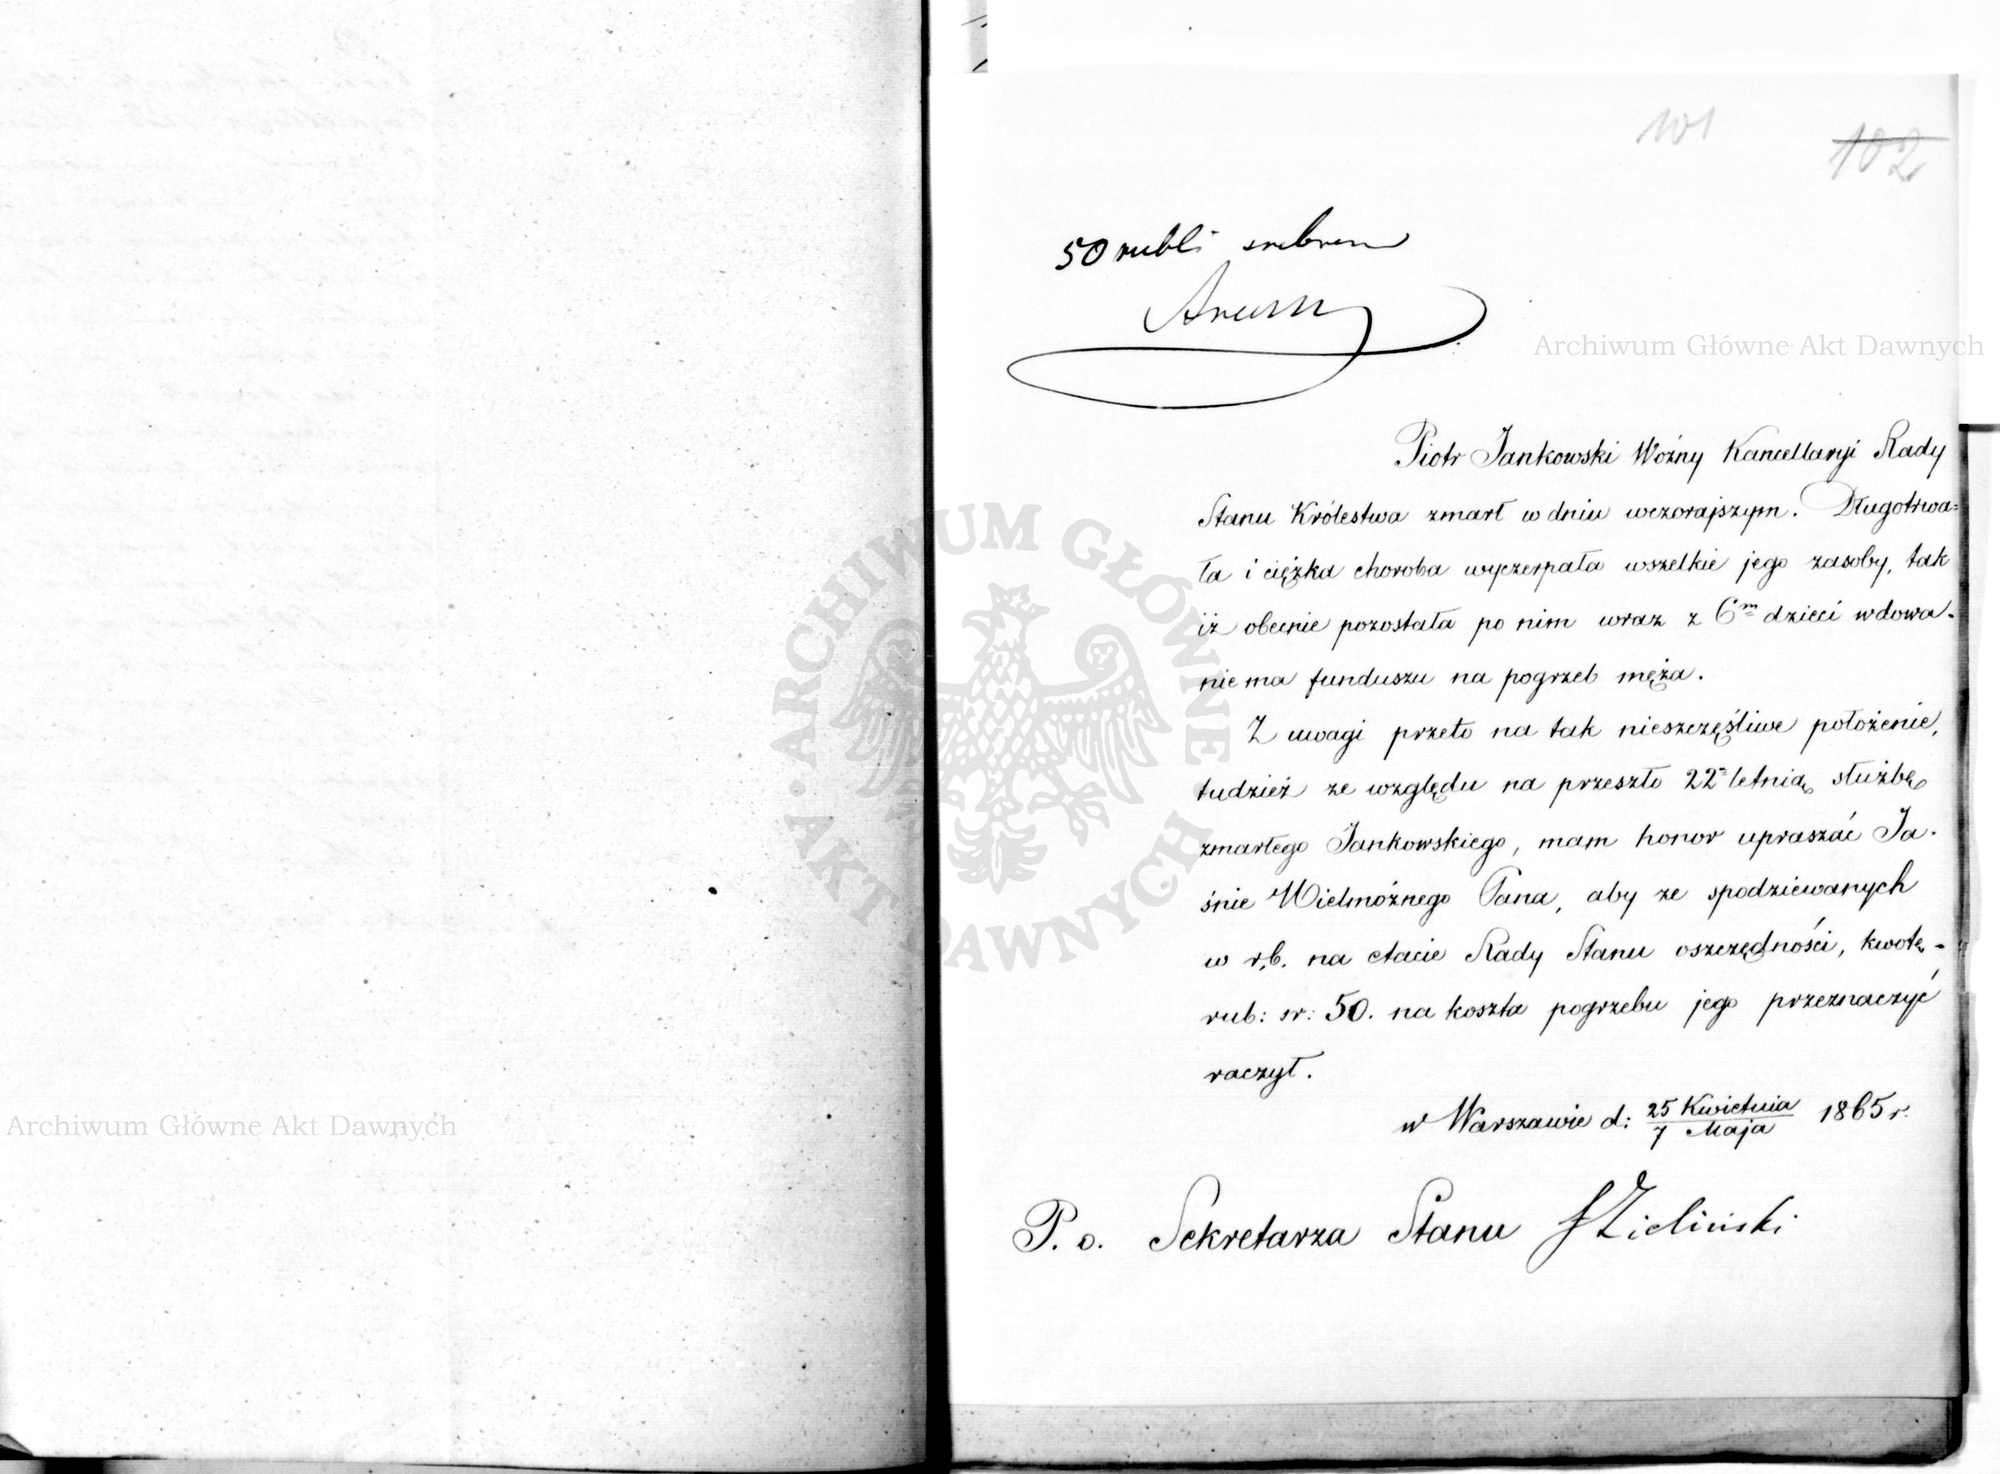 101
102
50 rubli srebrem
Piotr Jankowski Woźny Kancellaryi Rady
Stanu Królestwa zmarł w dniu wczorajszym. Długotrwa=
ła i ciężka choroba wyczerpała wszelkie jego zasoby, tak
iż obecnie pozostała po nim wraz z 6m dzieci wdowa
nie ma funduszu na pogrzeb męża.
Z uwagi przeto na tak nieszczęśliwe położenie,
tudzież ze względu na przeszło 22=letnią służbę
zmarłego Jankowskiego, mam honor upraszać Ja-
śnie Wielmożnego Pana, aby ze spodziewanych
w r.b. na etacie Rady Stanu oszczędności, kwotę
rub: sr: 50. na koszta pogrzebu jego przeznaczyć
raczył.
w Warszawie d: 25 Kwietnia / 7 Maja 1865 r.
P. o. Sekretarza Stanu Zieliński
Archiwum Główne Akt Dawnych
ARCHIWUM GŁÓWNE AKT DAWNYCH
Archiwum Główne Akt Dawnych